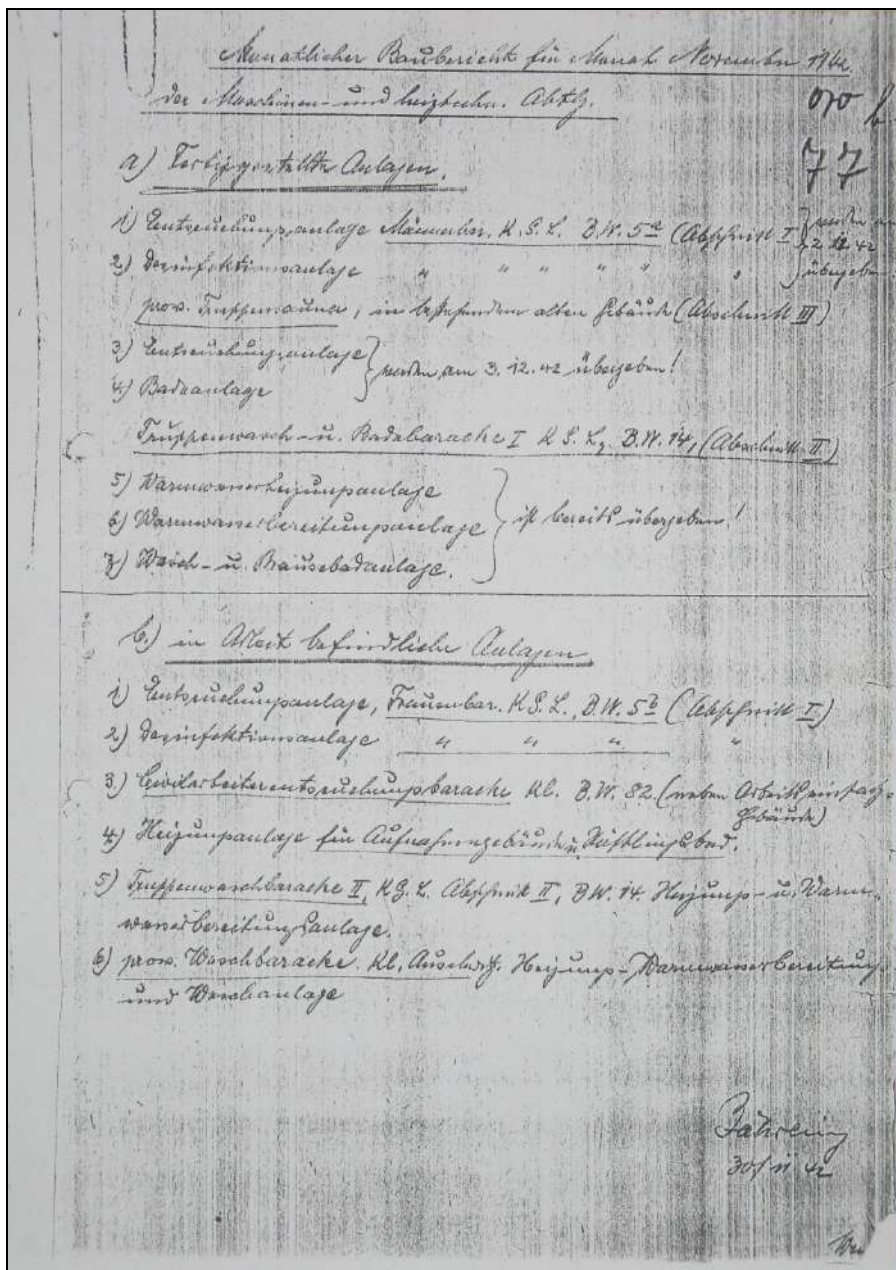 Monatlicher Baubericht für Monat November 1942
der Maschinen- und heiztechn. Abtlg.
070
77
a) Fertiggestellte Anlagen.
1) Entseuchungsanlage Männerbar. K.G.L. B.W. 5a (Abschnitt I) } werden am
2.) Desinfektionsanlage " " " " " " } 2 12 42 übergeben
prov. Truppensauna, in bestehendem alten Gebäude (Abschnitt III)
3.) Entseuchungsanlage
4.) Badeanlage } werden am 3. 12. 42 übergeben!
Truppenwasch- u. Badebarache I K G. L. B.W. 14, (Abschnitt II)
5) Warmwasserheizungsanlage
6) Warmwasserbereitungsanlage } ist bereits übergeben!
7) Wasch- u. Brausebadanlage.
b.) in Arbeit befindliche Anlagen
1) Entseuchungsanlage, Frauenbar. K G. L., B.W. 5b (Abschnitt I)
2) Desinfektionsanlage " " " "
3.) Civilarbeiterentseuchungsbarache Kl. B.W. 82 (neben Arbeitseinsatz-
Gebäude)
4.) Heizungsanlage für Aufnahmegebäude u. Häftlingsbad.
5) Truppenwaschbarache II, KG. L. Abschnitt II, BW. 14. Heizungs- u. Warm-
wasserbereitungsanlage.
6) prov. Waschbarache Kl. Auschwitz. Heizungs- Warmwasserbereitung
und Waschanlage
Jährling
30/11 42